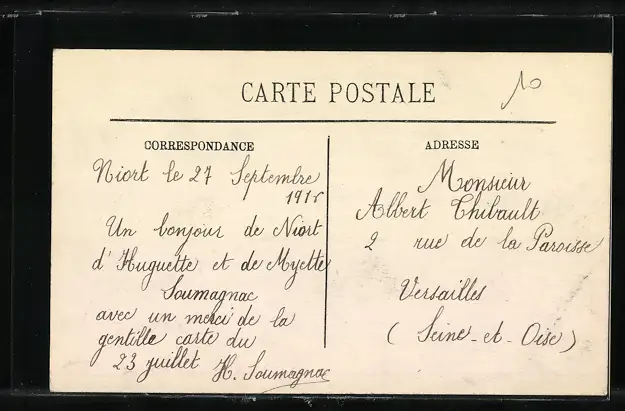 CARTE POSTALE
10
CORRESPONDANCE
Niort le 27 Septembre
1915
Un bonjour de Niort
d'Huguette et de Myette
Soumagnac
avec un merci de la
gentille carte du
23 juillet H. Soumagnac
ADRESSE
Monsieur
Albert Thibault
2 rue de la Paroisse
Versailles
(Seine-et-Oise)